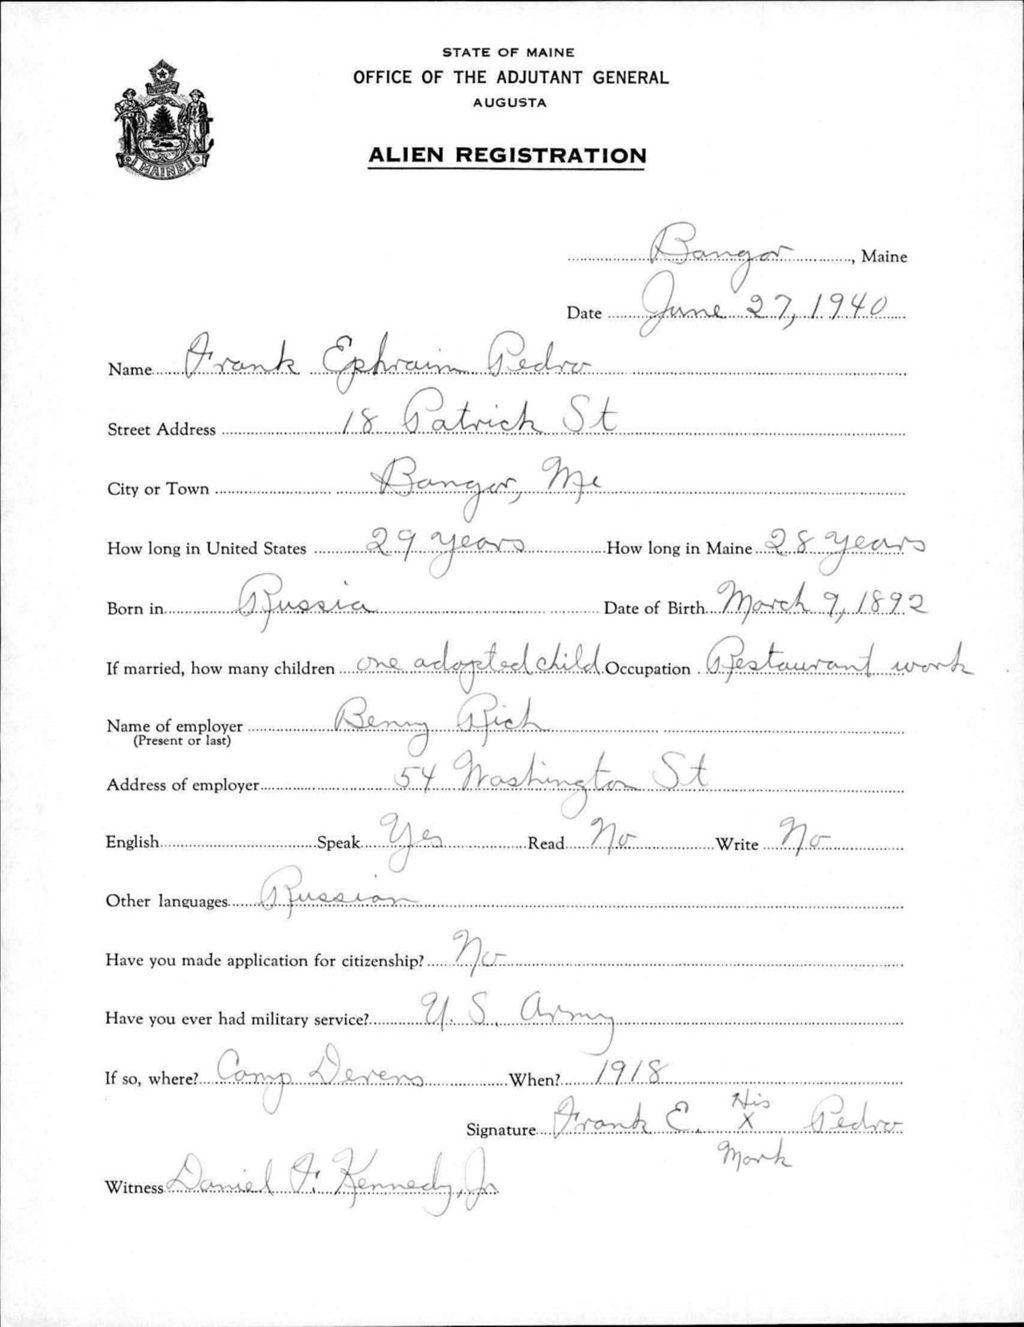 STATE OF MAINE
OFFICE OF THE ADJUTANT GENERAL
AUGUSTA
ALIEN REGISTRATION
MAINE
Bangor, Maine
Date June 27, 1940
Name Frank Ephraim Pedro
Street Address 18 Patrick St
City or Town Bangor, Me
How long in United States 29 years How long in Maine 28 years
Born in Russia Date of Birth March 9, 1892
If married, how many children one adopted child Occupation Restaurant work
Name of employer Benny Rich
(Present or last)
Address of employer 54 Washington St
English Speak Yes Read No Write No
Other languages Russian
Have you made application for citizenship? No
Have you ever had military service? U. S. Army
If so, where? Camp Devens When? 1918
His
Signature Frank E. X Pedro
Mark
Witness Daniel F. Kennedy, Jr